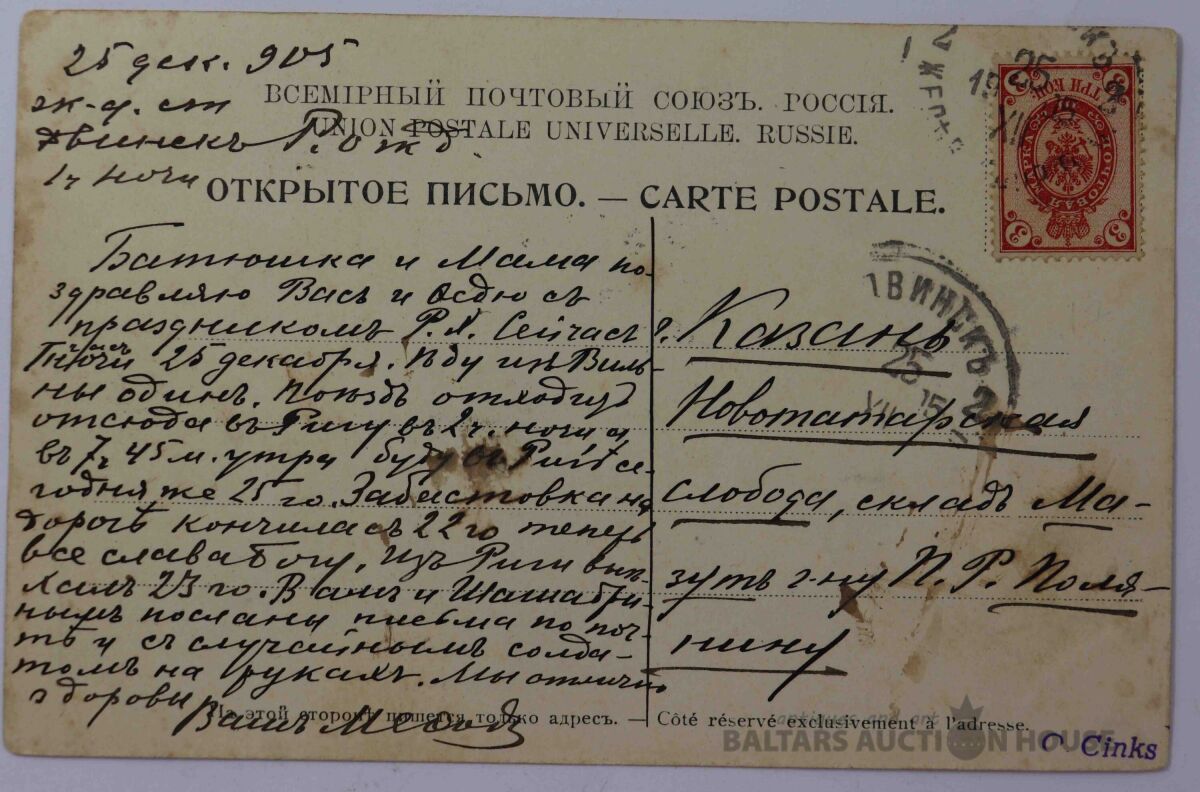 25 дек. 905
ж-д. ст
Двинскъ Рожд
1 ч ночи
ВСЕМІРНЫЙ ПОЧТОВЫЙ СОЮЗЪ. РОССІЯ.
UNION POSTALE UNIVERSELLE. RUSSIE.
ОТКРЫТОЕ ПИСЬМО. — CARTE POSTALE.
Батюшка и Мама по-
здравляю Васъ и Федю съ
праздникомъ Р.Х. Сейчасъ
1 часъ ночи 25 декабря. Ѣду изъ Виль-
ны одинъ. Поѣздъ отходитъ
отсюда въ Ригу въ 2 ч. ночи и
въ 7 ч 45 м. утра буду въ Ригѣ се-
годня же 25 го. Забастовка на
дорогѣ кончилась 22 го теперь
все слава Богу. Изъ Риги выѣ-
халъ 23 го. Вамъ и
нымъ посланы письма по поч-
тѣ и съ случайнымъ солда-
томъ на рукахъ. Мы отлично
здоровы
Вашъ
г. Казань
Новотатарская
слобода, складъ Ма-
зутъ г-ну П. Р. Поля-
нину
ДВИНСКЪ 2
25
XII 15
25
19
ПОЧТОВАЯ МАРКА
ТРИ КОП.
3 3 3 3
На этой сторонѣ пишется только адресъ. — Côté réservé exclusivement à l'adresse.
BALTARS AUCTION HOUSE
O. Cinks